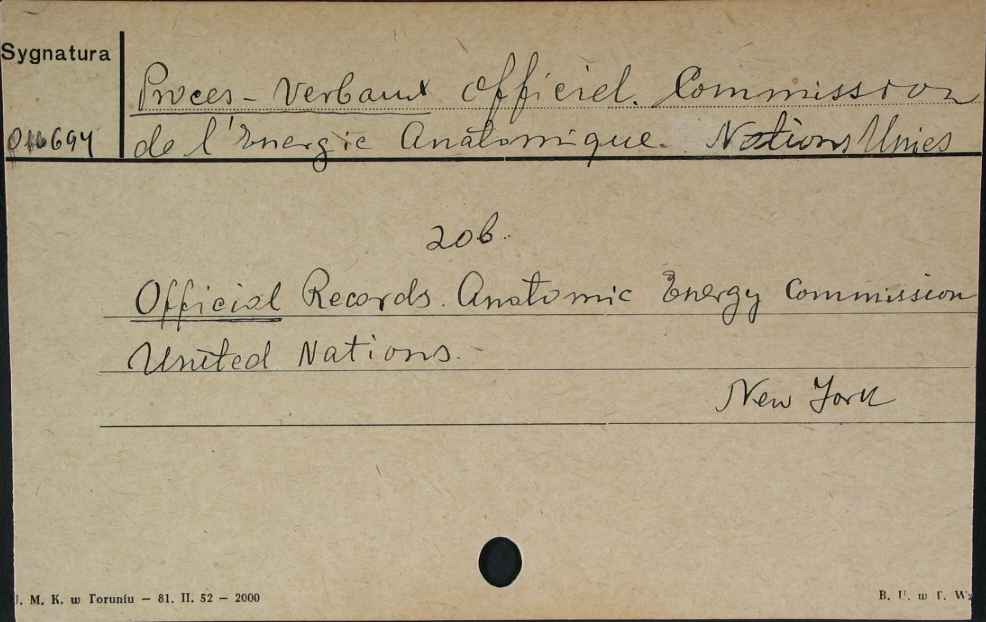 Sygnatura
Proces-Verbaux Officiel. Commission
de l'Energie Anatomique. Nations Unies
206.
Official Records. Anatomic Energy Commission
United Nations.-
New York
J. M. K. w Toruniu — 81. II. 52 — 2000
B. U. w T.